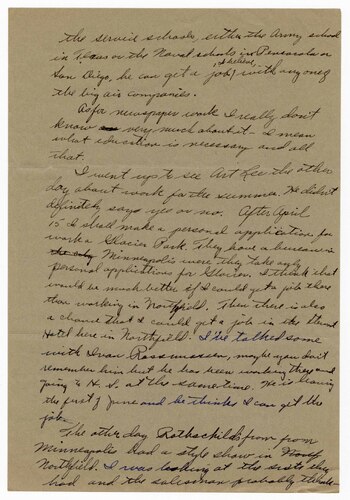 the service schools, either the Army school
in Texas or the Naval schools in Pensacola or
San Diego, he can get a job, I believe, with any one of
the big air companies.
As for newspaper work I really don't
know very much about it - I mean
what education is necessary and all
that.
I went up to see Art Lee the other
day about work for the summer. He didn't
definitely say yes or no. After April
15 I shall make a personal application for
work a Glacier Park. They have a bureau in
Minneapolis were they take only
personal applications for Glacier. I think that
would be much better if I could get a job there
than working in Northfield. Then there is also
a chance that I could get a job in the Stuart
Hotel here in Northfield. I've talked some
with Ivan Rassmussen, maybe you don't
remember him but he has been working there and
going to H. S. at the same time. He is leaving
the first of June and he thinks I can get the
job.
The other day Rothschilds from from
Minneapolis had a style show in
Northfield. I was looking at the suits they
had and the salesman probably